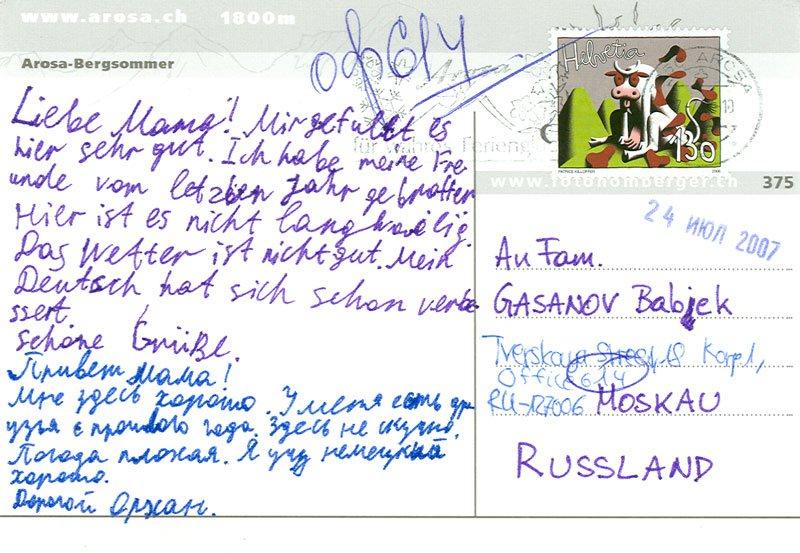 www.arosa.ch 1800m
Arosa-Bergsommer
оф 614
Helvetia
AROSA
130
PATRICE KILLOFFER 2006
www.fotohomberger.ch 375
24 ИЮЛ 2007
Liebe Mama! Mir gefullt es
hier sehr gut. Ich habe meine Fre-
unde vom letzten Jahr gebrotten
Hier ist es nicht langweilig.
Das Wetter ist nicht gut. Mein
Deutsch hat sich schon verbe-
ssert.
schöne Grüße.
Привет мама!
Мне здесь хорошо. У меня есть дру
узья с прошлого года. Здесь не скучно.
Погода плохая. Я учу немецкий
хорошо.
Дорогой Орхан.
An Fam.
GASANOV Babjek
Tverskaya street 18 Korp1,
Office 614
RU-127006 MOSKAU
RUSSLAND